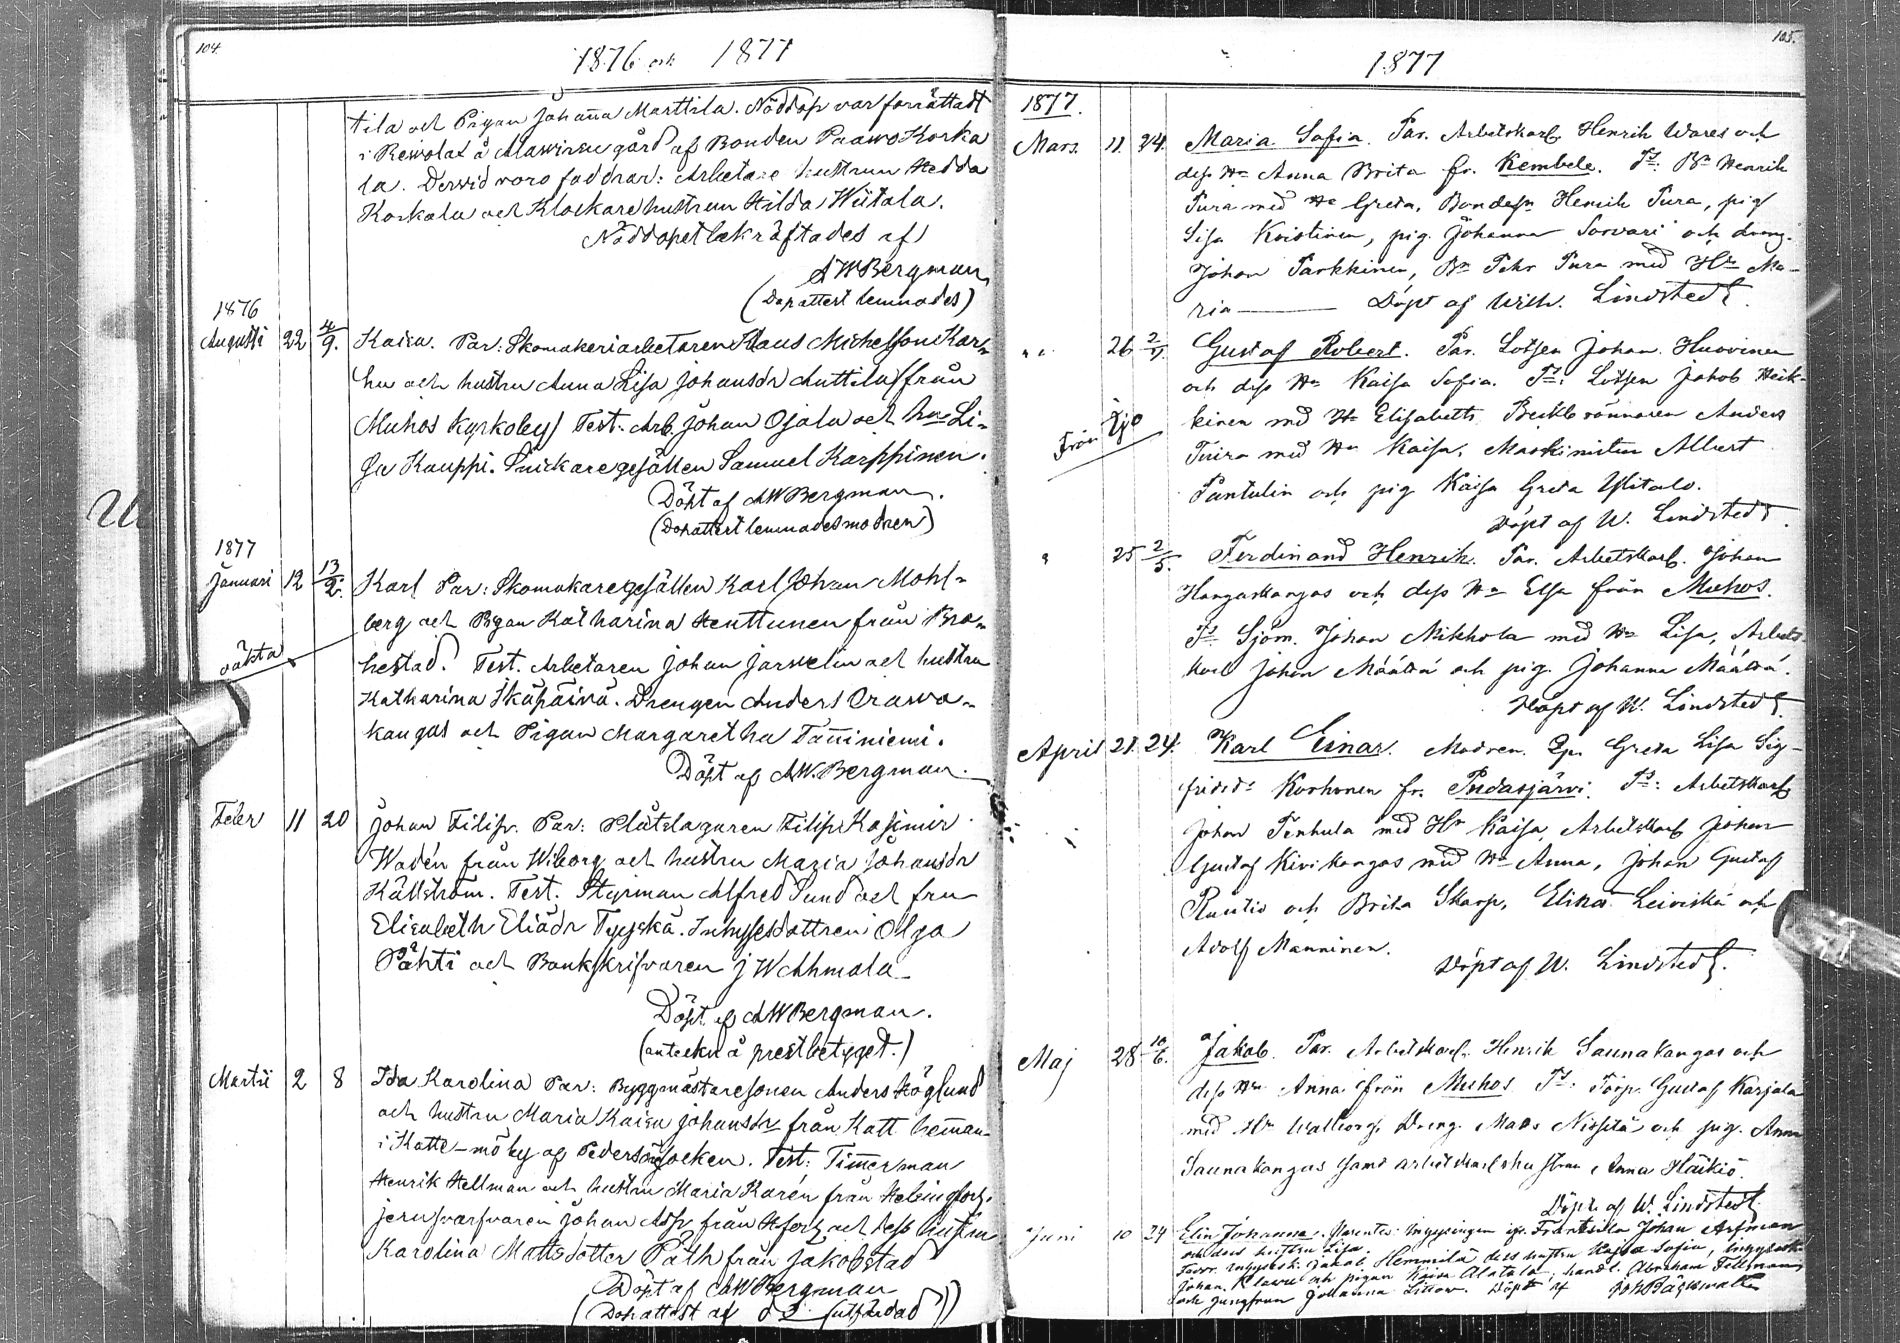 104.
1876 och 1877
tila och Pigan Johanna Marttila. Nöddop var förrättadt
i Rewolax å Alawiren gård af Bonden Paawo Korka
la. Dervid voro faddrar: Arbetare hustrun Hedda
Korkala och Klockarehustrun Hilda Wiitala.
Nöddopet bekräftades af
AWBergman
(Dopattest lemnades)
1876
Augusti 22 4/9. Kaisa. Par: Skomakeriarbetaren Klaus Michelsson Kar-
hu och hustru Anna Lisa Johansdr Anttila (från
Muhos Kyrkoby) Test. Arb. Johan Ojala och hu Li-
sa Kauppi. Snickaregesällen Samuel Karppinen.
Döpt af AWBergman.
(Dopattest lemnades modren)
1877
Januari 12 13/2. Karl Par: Skomakaregesällen Karl Johan Mohl-
berg och Pigan Katharina Henttunen från Bra-
oäkta
hestad. Test. Arbetaren Johan Jarwelin och hustru
Katharina Ikäpäivä. Drengen Anders Orawa-
kangas och Pigan Margaretha Tanniniemi.
Döpt af AW.Bergman.
Febr 11 20 Johan Filip. Par: Plåtslagaren Filip Kasimir
Wadén från Wiborg och hustru Maria Johansdr
Källström. Test. Styrman Alfred Sund och fru
Elisabeth Eliädr Tyyskä. Inhysesdottren Olga
Påhti och Bankskrifvaren J W Ahmala
Döpt af AWBergman.
(anteckn å prestbetyget.)
Martii 2 8 Ida Karolina Par: Byggmästaresonen Anders Höglund
och hustru Maria Kaisa Johansdr från Katt hemman
i Katte-möby af Pedersöre socken. Test: Timmerman
Henrik Hellman och hustru Maria Karén från Helsingfors.
jernsvarfvaren Johan Asp från Hfors och dess hustru
Karolina Mattsdotter Påth från Jakobstad
Döpt af AWBergman
(Dopattest af d 2 utfärdad)
105.
1877
1877.
Mars. 11 24. Maria Sofia. Par. Arbetskarl Henrik Wares och
dess Hu Anna Brita fr. Kembele. Ts: Bn Henrik
Pura med Hu Greta, Bondes Henrik Pura, pig
Lisa Kristina, pig. Johanna Sorvari och dreng.
Johan Parkkinen, Bn Pehr Pura med Hu Ma-
ria Döpt af Wilh. Lindstedt.
" " 26 Gustaf Robert. Par. Lotsen Johan Huovinen
och dess Hu Kaisa Sofia. Ts: Lotsen Jakob Heik-
från Ijo
kinen med Hu Elisabeth, Beckbrännaren Anders
Tuira med Hu Kaisa, Maskinisten Albert
Pantulin och pig Kaisa Greta Ylitalo.
Döpt af W. Lindstedt.
" 25 2/5. Ferdinand Henrik. Par. Arbetskarl. Johan
Hangaskangas och dess Hu Elsa från Muhos.
Ts Sjöm. Johan Mikkola med Hu Lisa, Arbets
karl Johan Määttä och pig. Johanna Määttä.
Döpt af W. Lindstedt.
April 21 24. Karl Einar. Modren. Ep. Greta Lisa Sig-
fridsdr Korhonen fr. Pudasjärvi. Ts: Arbetskarl
Johan Penhula med Hu Kaisa, Arbetskarl Johan
Gustaf Kivikangas med Hu Anna, Johan Gustaf
Ruutio och Brita Skarp, Elina Leiviskä och
Adolf Manninen.
Döpt af W. Lindstedt.
Maj 28 10/6. Jakob. Par. Arbetskarl. Henrik Saunakangas och
dess Hu Anna från Muhos. Ts: Torp. Gustaf Karjala
med Hu Walborg, Dreng. Mats Nissilä och pig. Anna
Saunakangas samt arbetskarlshustrun Anna Häikiö.
Döpt af W. Lindstedt
Juni 10 24 Elin Johanna. Parentes: Inhysingen Frantsila Johan Arfman
och dess hustru Lisa.
Faddr. Jakob Hemmilä dess hustru Kajsa Sofia,
Johan Klavu och pigan Kaisa Alatalo, handl. Abraham Fellman
och jungfrun Johanna Littow. Döpt af